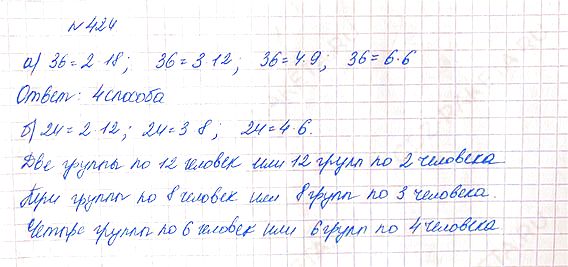 № 424
а) 36 = 2·18; 36 = 3·12; 36 = 4·9; 36 = 6·6
Ответ: 4 способа
б) 24 = 2·12; 24 = 3·8; 24 = 4·6.
Две группы по 12 человек или 12 групп по 2 человека
Три группы по 8 человек или 8 групп по 3 человека.
Четыре группы по 6 человек или 6 групп по 4 человека